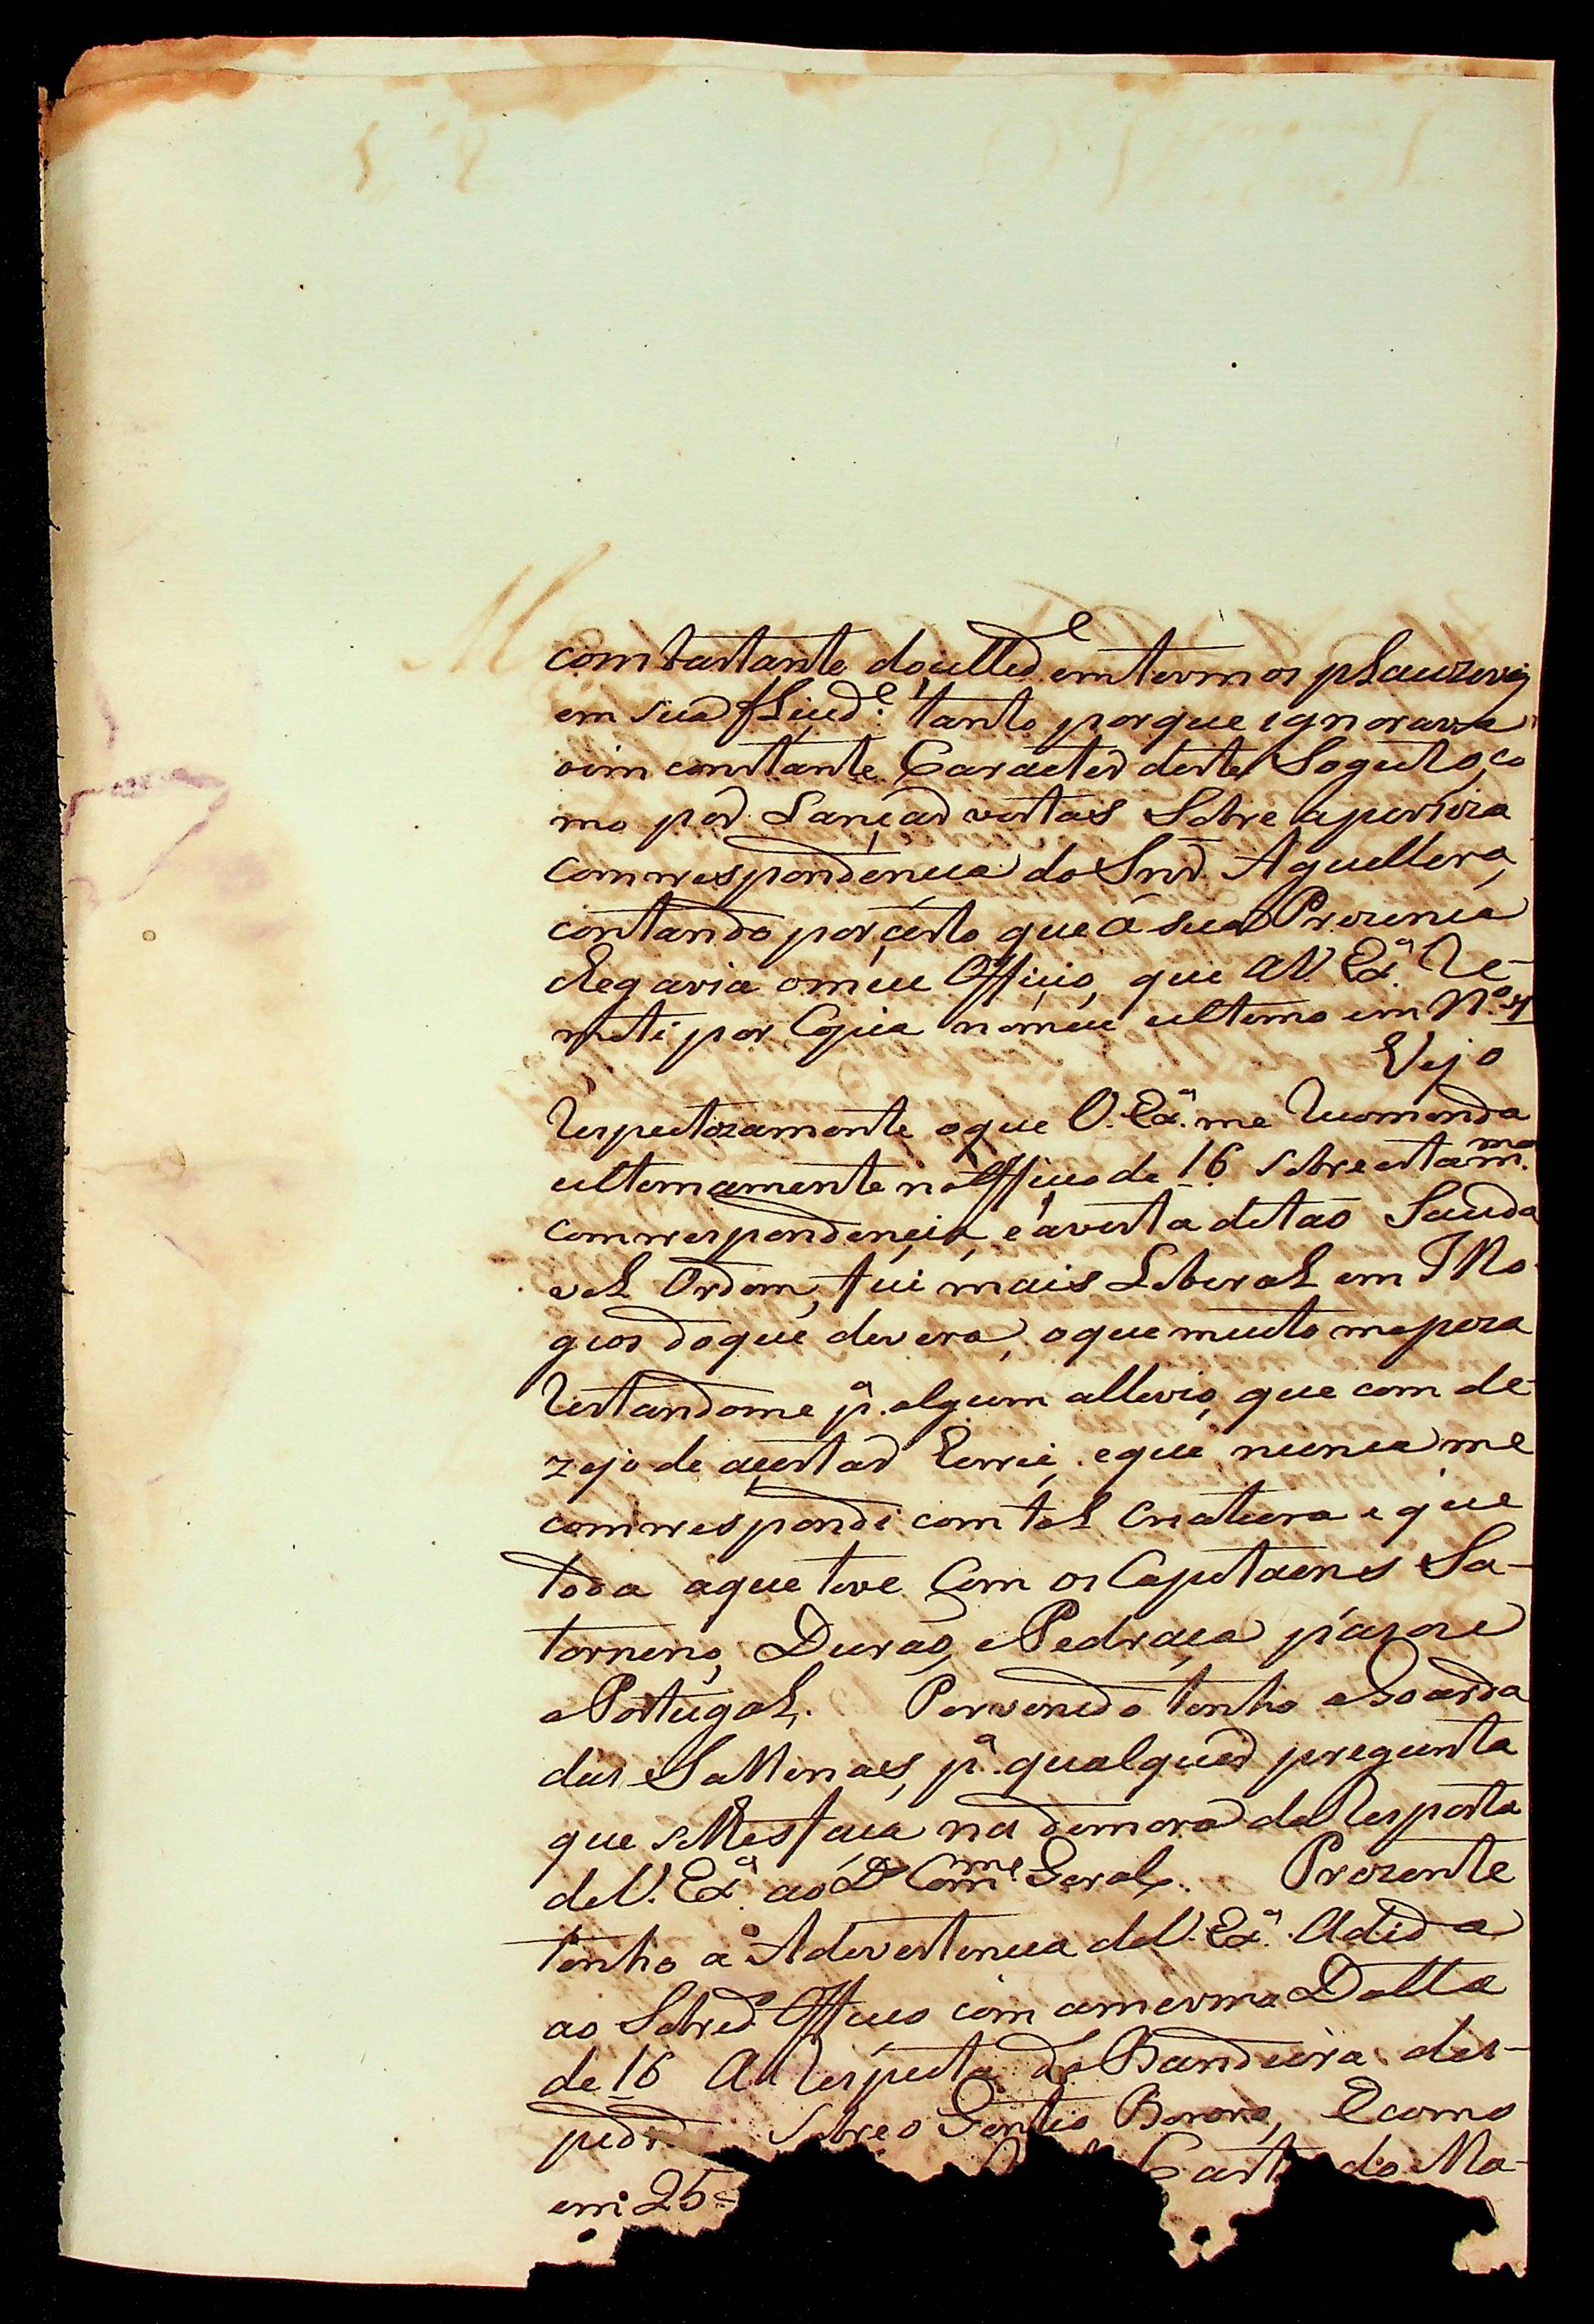 com bastante docilid.e em termos plauziveis
em sua fluid.e: tanto porque ignorava
oim constante Caracter deste Sogeito, co
mo por Lançar vistas Sobre aperfoza
comrrespondencia do Snr. Aguillera,
contando por certo que á sua Prezencia
chegaria omeu Officio, que AV. Ex.a Re-
meti por Copia nomeu ultimo em N.o 4
Vejo
Respeitozamente oque V. Ex.a me Recomenda
ultimamente nóOfficio de 16 Sobre esta m.ma
comrrespondençia, e ávista detaõ Sauda
vel Ordem, fui mais Liberal em Ello
gios doque devera, oque muito mepeza
Restandome p.a algum allivio, que com de-
zejo de açertar Errei, eque nunca me
comrrespondi com tal Criatura e que
toda aque tive Com os Capitaens Sa-
tornino, Duraõ, e Pedraça pára ne
Portugal. Pervenido tenho aGoarda
das Sallinas, p.a qualquer pregunta
que selhes faça na demora da Resposta
deV. Ex.a ao D.o Com.me Geral. Prezente
tenho a Advertencia deV. Ex.a Adida
ao Sobred.o Officio com amesma Datta
de 16 A Respeito da Bandeira des-
pedi Sobre o Gentio Bororo, Ecomo
em 25 Cart do Ma-